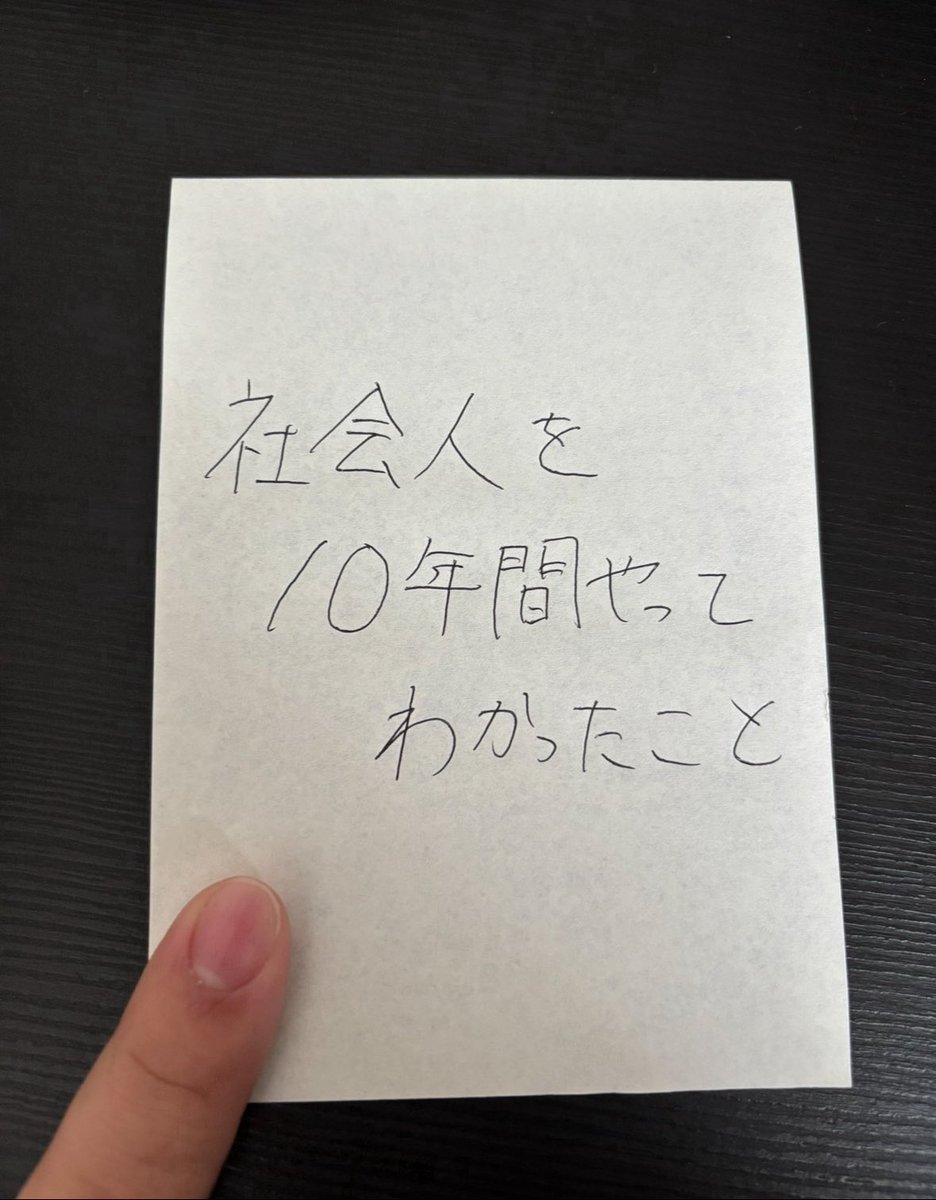 社会人を
10年間やって
わかったこと